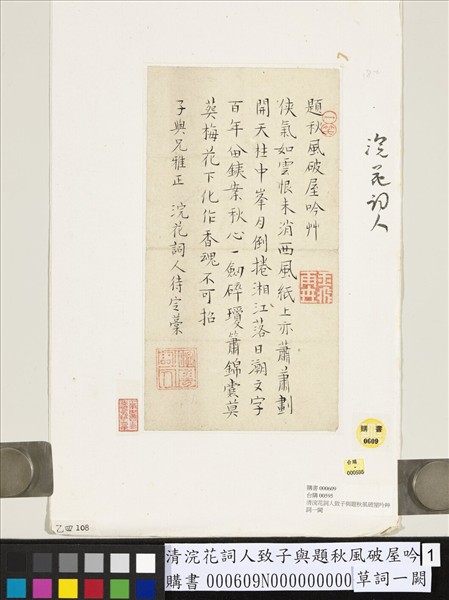 題秋風破屋吟艸
俠氣如雲恨未消西風紙上亦蕭蕭劃
開天柱中峯月倒捲湘江落日潮文字
百年留鋏案秋心一劒碎瓊簫錦囊莫
葬梅花下化作香魂不可招
子與兄雅正 浣花詞人待定藁
浣花詞人
購書
0609
台購
000595
購書 000609
台購 00595
清浣花詞人致子與題秋風破屋吟艸
詞一闋
乙四 108
清浣花詞人致子與題秋風破屋吟
購書 000609N000000000 草詞一闋
1